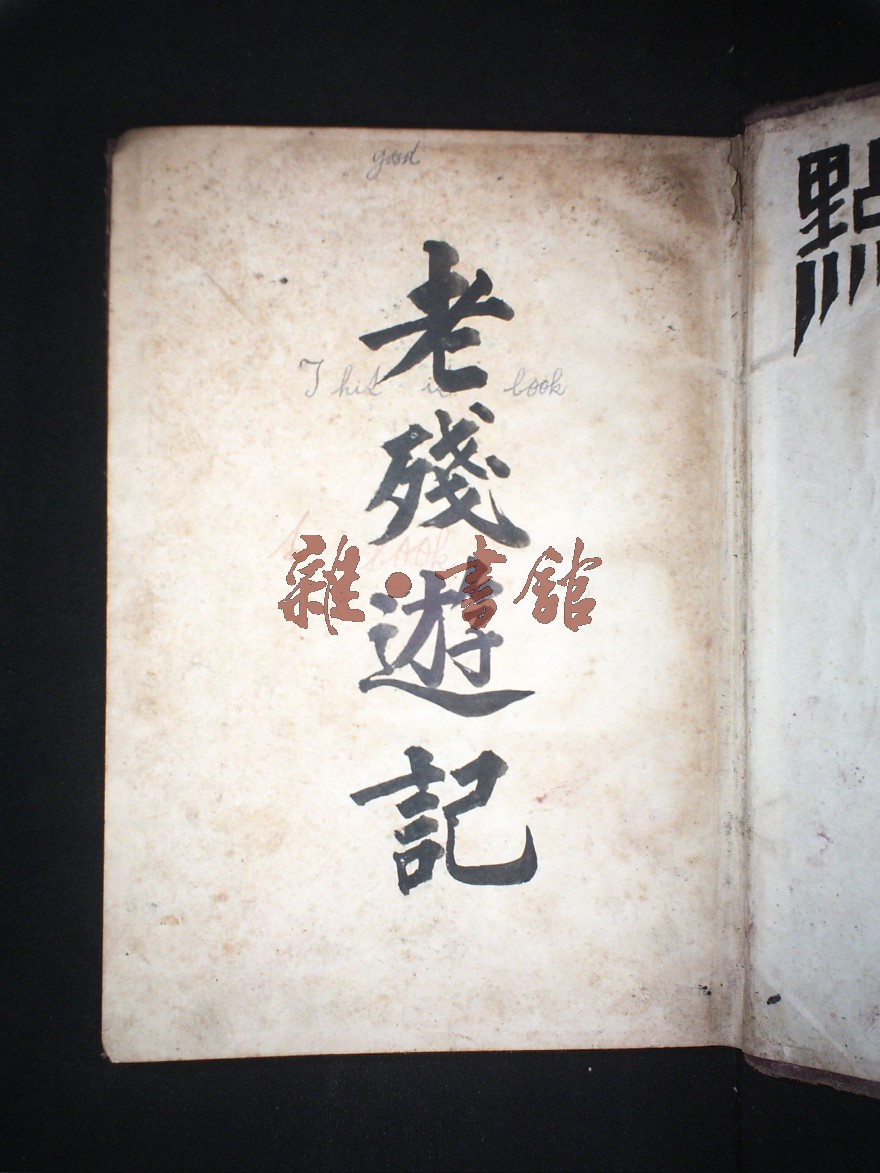 good
老殘遊記
This is book
book
雜·書館
點